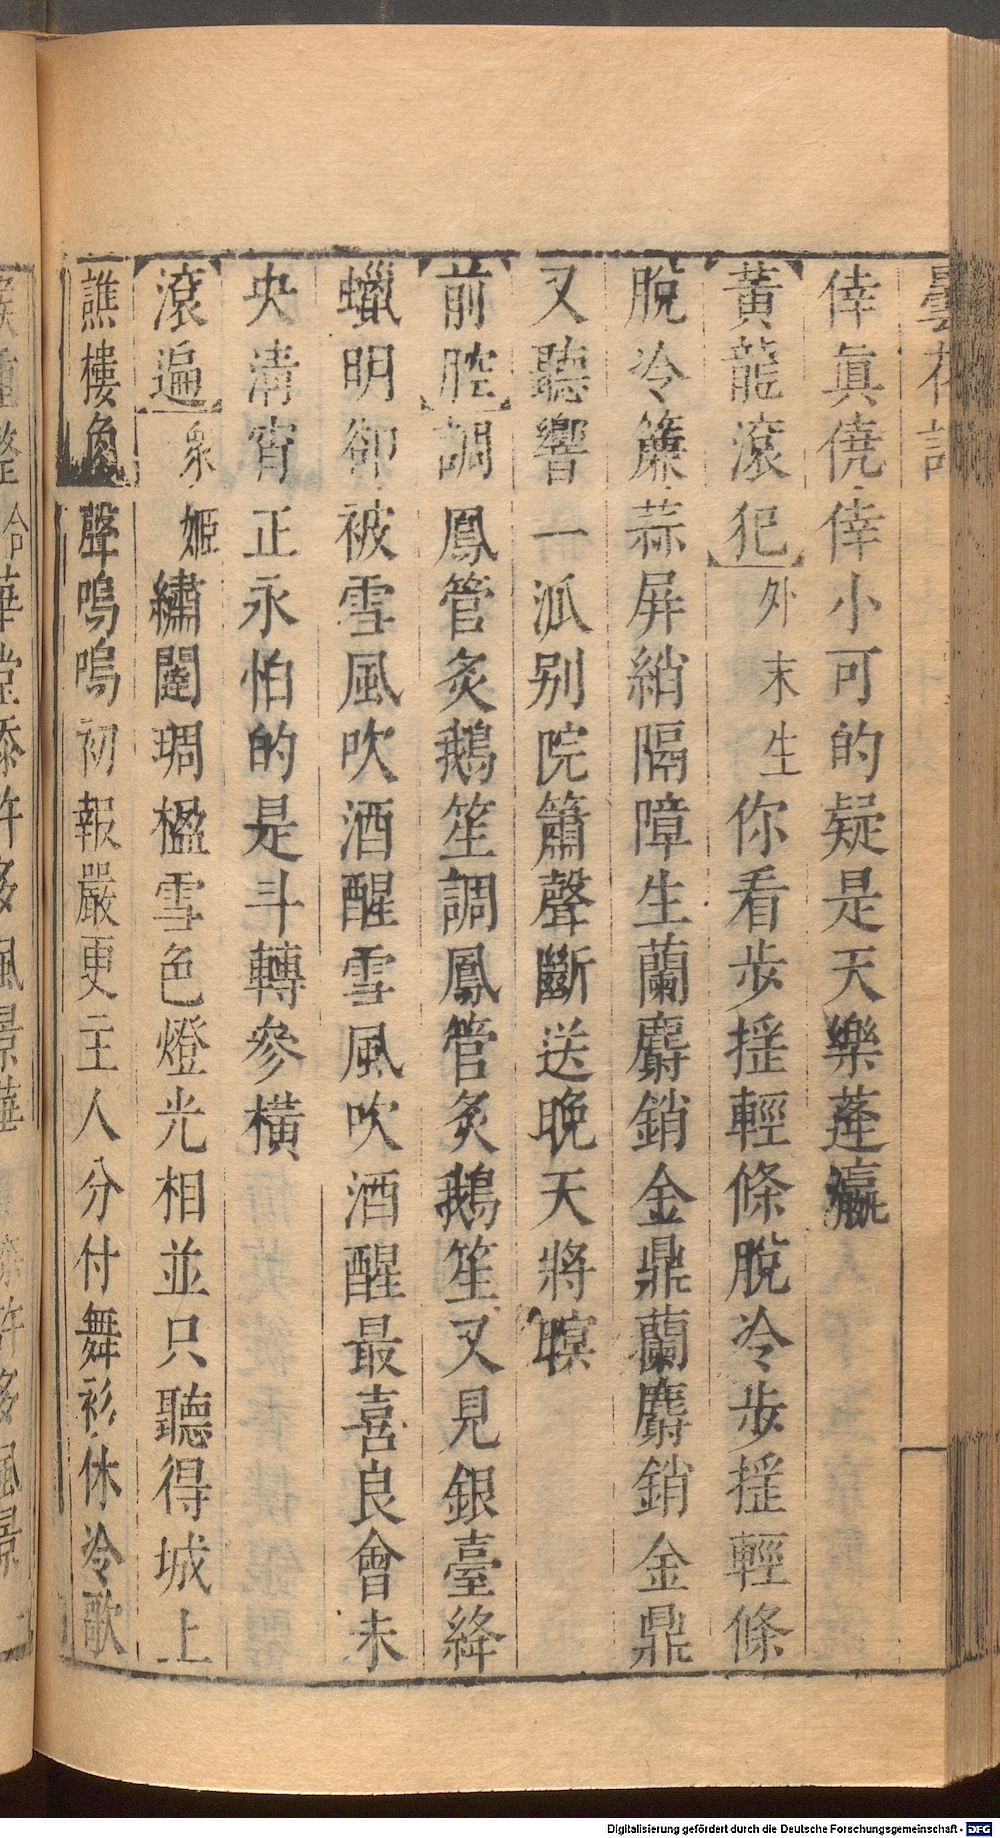 曇花記
倖眞僥倖小可的疑是天樂蓬瀛
黃龍滾犯 外末生 你看步搖輕條脫冷步搖輕條
脫冷簾蒜屏綃隔障生蘭麝銷金鼎蘭麝銷金鼎
又聽響一派別院簫聲斷送晚天將暝
前腔 調鳳管炙鵝笙調鳳管炙鵝笙又見銀臺絳
蠟明卻被雪風吹酒醒雪風吹酒醒最喜良會未
央清宵正永怕的是斗轉參橫
滾遍 衆姬 繡闥琱楹雪色燈光相並只聽得城上
譙樓角聲嗚嗚初報嚴更主人分付舞衫休冷歌
Digitalisierung gefördert durch die Deutsche Forschungsgemeinschaft - DFG